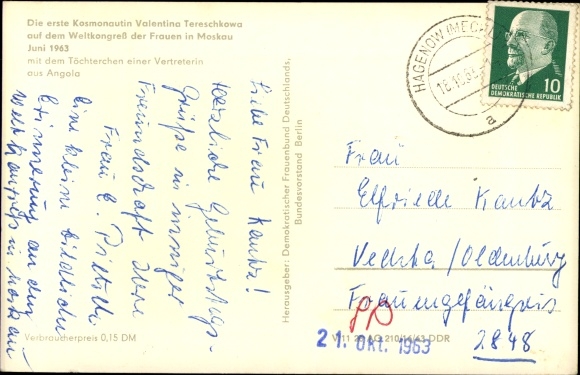 Die erste Kosmonautin Valentina Tereschkowa
auf dem Weltkongreß der Frauen in Moskau
Juni 1963
mit dem Töchterchen einer Vertreterin
aus Angola
Liebe Frau Kautz!
Herzliche Geburtstags-
grüße in inniger
Freundschaft Ihre
Frau E.
Eine kleine bildliche
Erinnerung an den
Weltkongreß in Moskau
Verbraucherpreis 0,15 DM
Herausgeber: Demokratischer Frauenbund Deutschlands,
Bundesvorstand Berlin
HAGENOW (MECKL
a
DEUTSCHE
DEMOKRATISCHE REPUBLIK
10
Frau
Elfriede Kautz
Vechta/Oldenburg
Frauengefängnis
2848
21. Okt. 1963
DDR